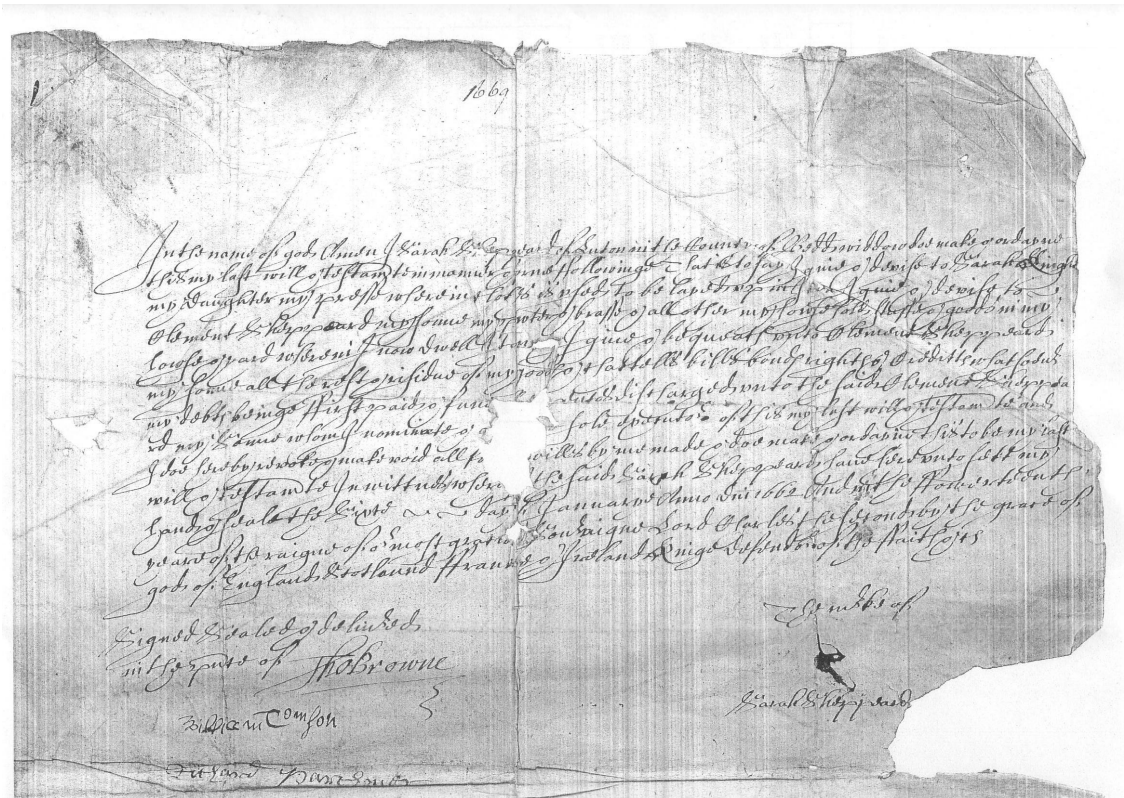 1669
In the name of god Amen I Sarah Sheppeard of Luton in the County of Bedd widdow doe make & ordayne
this my last will & testamte in manner & forme followinge That is to say I give & devise to Sarah Knight
my daughter my presse wherein cloths is vsed to be layed vp in I give & devise to
Clement Sheppeard my sonne my pewter & brasse & all other my howsehold stuffe & goods in my
howse & yard wherein I now dwell Item I give & bequeath vnto Clement Sheppeard
my sonne all the rest & residue of my goods & chattells bills bonds rights & Creditts whatsoeuer
my debts beinge ffirst paid & fun discharged vnto the said Clement Sheppea
rd my Sonne whome I nominate & sole executor of this my last will & testamte and
I doe hereby revoke & make void all fo wills by me made & doe make & ordayne this to be my last
will & testamte In wittnes where the said Sarah Sheppeard have herevnto sett my
hand & seale the Sixte day of January Anno dni 1662 And in the fowerteenth
yeare of the raigne of or most gratio Soveraigne Lord Charles the second by the grace of
god of England Scotland ffrance & Ireland Kinge defendor of the ffaith &c
Signed Sealed & deliuered
in the prsnte of Tho Browne
William Tomson
Richard
The mrke of
Sarah Sheppeard